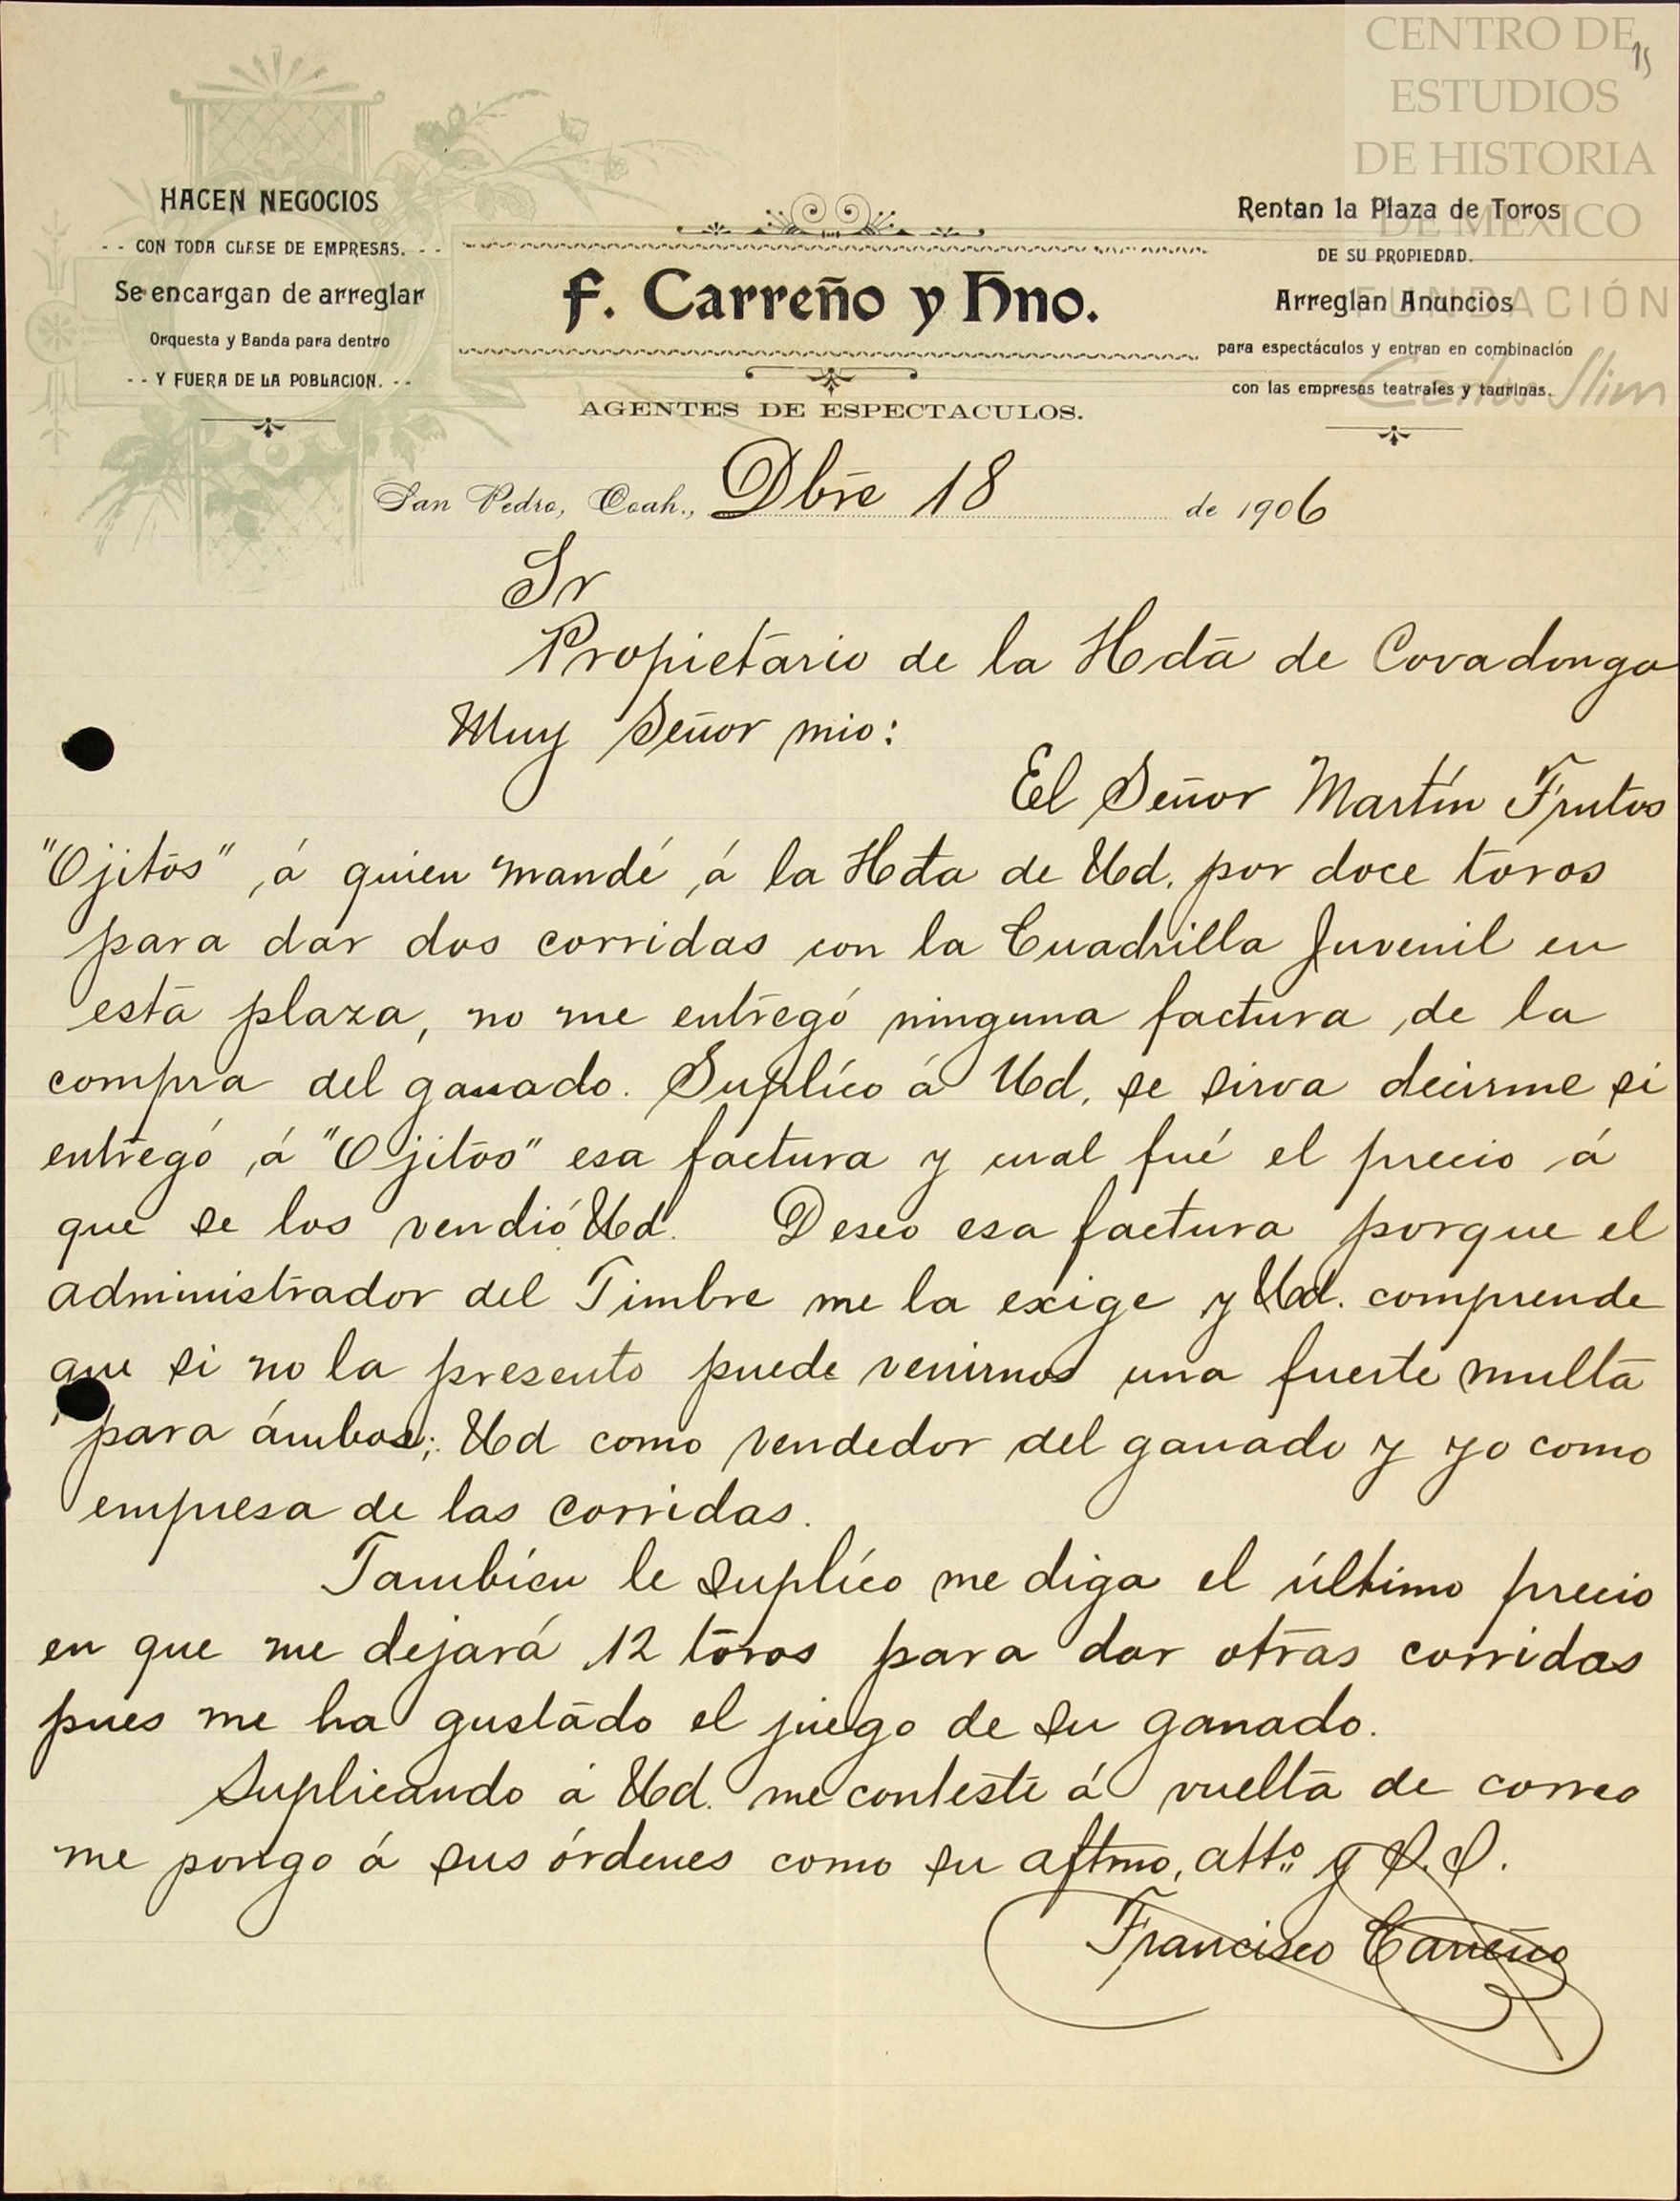 CENTRO DE
ESTUDIOS
DE HISTORIA
DE MÉXICO
FUNDACIÓN
Carlos Slim
15
HACEN NEGOCIOS
- - CON TODA CLASE DE EMPRESAS. - -
Se encargan de arreglar
Orquesta y Banda para dentro
- - Y FUERA DE LA POBLACION. - -
F. Carreño y Hno.
AGENTES DE ESPECTACULOS.
Rentan la Plaza de Toros
DE SU PROPIEDAD.
Arreglan Anuncios
para espectáculos y entran en combinación
con las empresas teatrales y taurinas.
San Pedro, Coah., Dbre 18 de 1906
Sr
Propietario de la Hda de Covadonga
Muy Señor mio:
El Señor Martín Frutos
"Ojitos", á quien mandé á la Hda de Ud. por doce toros
para dar dos corridas con la Cuadrilla Juvenil en
esta plaza, no me entregó ninguna factura de la
compra del ganado. Suplíco á Ud. se sirva decirme si
entregó á "Ojitos" esa factura y cual fué el precio á
que se los vendió Ud. Deseo esa factura porque el
administrador del Timbre me la exige y Ud. comprende
que si no la presento puede venirnos una fuerte multa
para ámbos; Ud como vendedor del ganado y yo como
empresa de las corridas.
Tambien le suplíco me diga el último precio
en que me dejará 12 toros para dar otras corridas
pues me ha gustado el juego de su ganado.
Suplicando á Ud. me conteste á vuelta de correo
me pongo á sus órdenes como su aftmo, atto y S. S.
Francisco Carreño